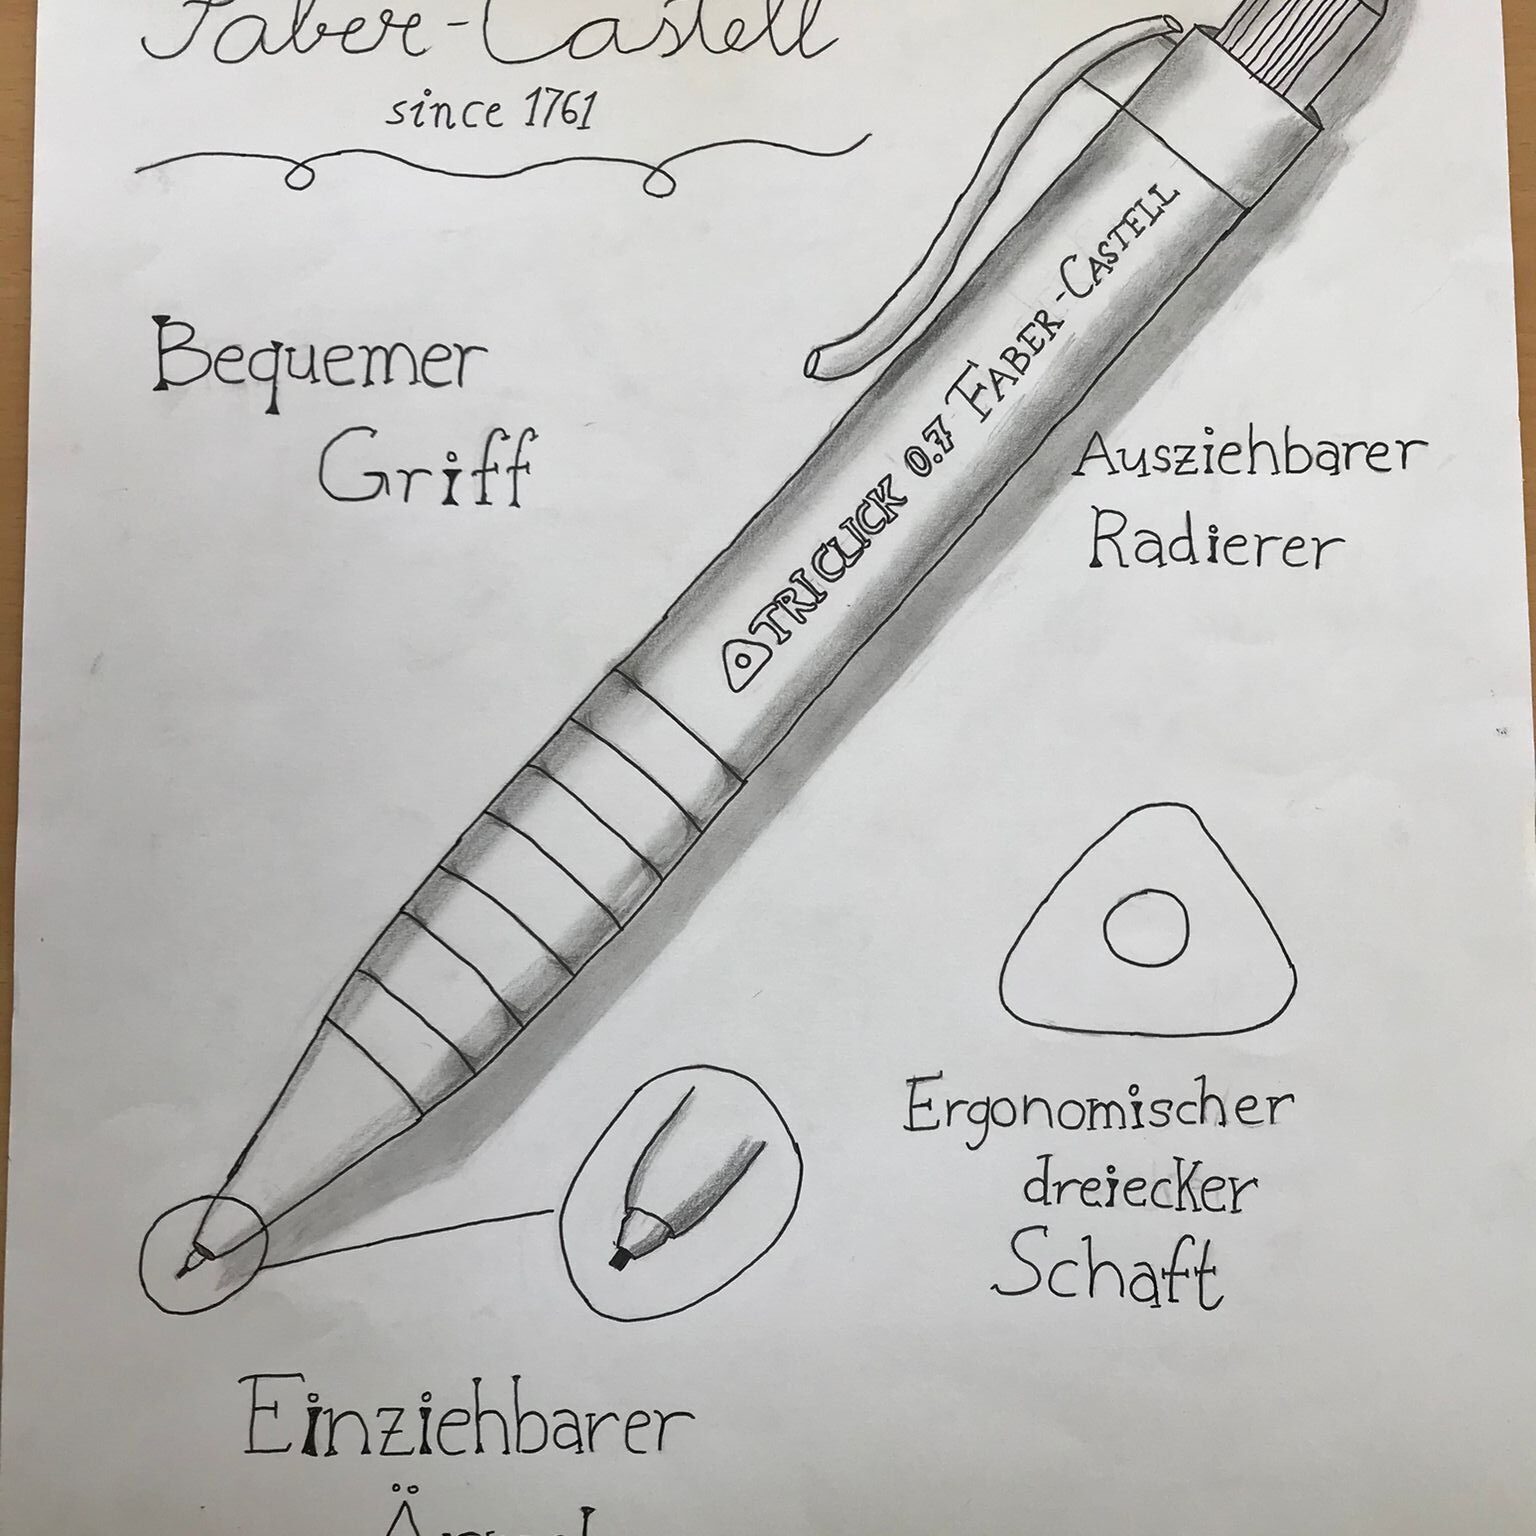 Faber-Castell
since 1761
Bequemer
Griff
TRICLICK 0.7 FABER-CASTELL
Ausziehbarer
Radierer
Ergonomischer
dreiecker
Schaft
Einziehbarer